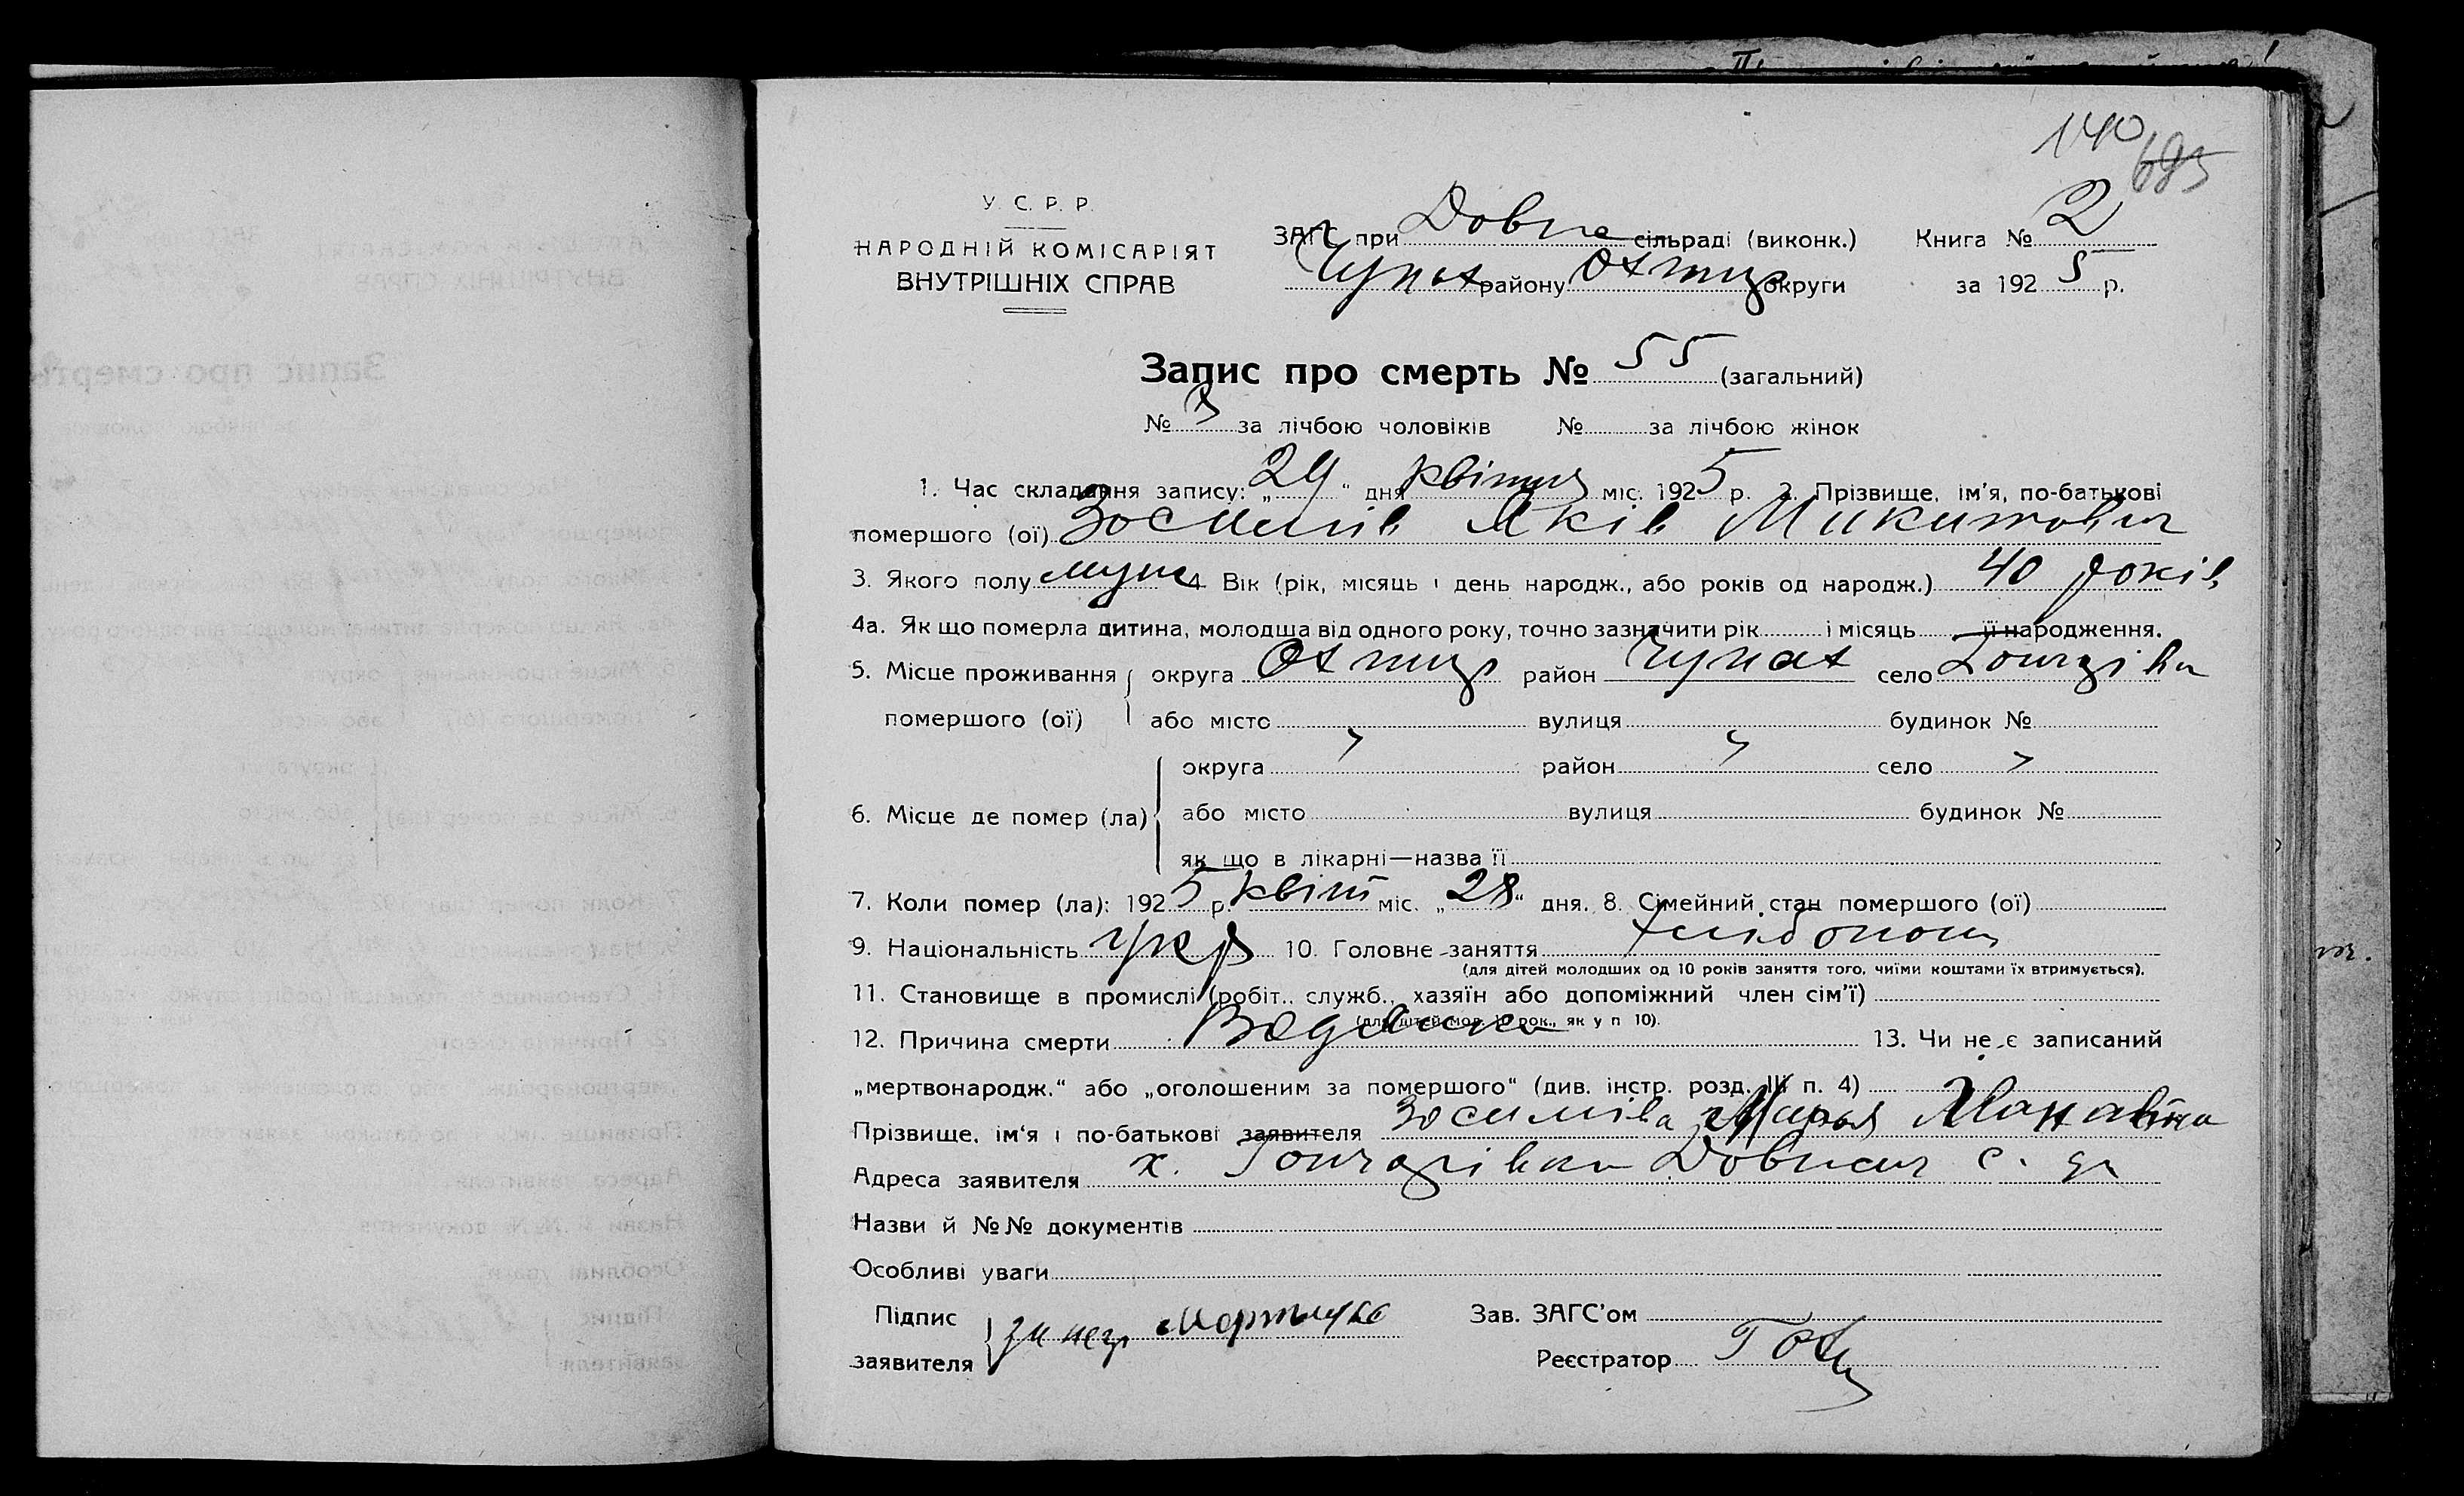 140
693
У. С. Р. Р.
НАРОДНІЙ КОМІСАРІЯТ
ВНУТРІШНІХ СПРАВ
ЗАГС при Добне сільраді (виконк.)
Чупах району Охтир округи
Книга № 2
за 1925 р.
Запис про смерть № 55 (загальний)
№ за лічбою чоловіків № за лічбою жінок
1. Час складання запису: „29" дня квітня міс. 1925 р. 2. Прізвище, ім'я, по-батькові
помершого (ої) Зосимів Яків Микитович
3. Якого полу муж 4 Вік (рік, місяць і день народж., або років од народж.) 40 років
4а. Як що померла дитина, молодша від одного року, точно зазначити рік і місяць її народження.
5. Місце проживання округа Охтир район Чупах село
помершого (ої) або місто вулиця будинок №
округа " район " село "
6. Місце де помер (ла) або місто вулиця будинок №
як що в лікарні—назва її
7. Коли помер (ла): 1925 р. квіт міс. „28" дня. 8. Сімейний стан помершого (ої)
9. Національність укр 10. Головне заняття хлібороб
(для дітей молодших од 10 років заняття того, чиїми коштами їх втримується).
11. Становище в промислі (робіт., служб., хазяїн або допоміжний член сім'ї)
(для дітей мол. 10 рок., як у п 10).
12. Причина смерти Водянка 13. Чи не є записаний
„мертвонародж." або „оголошеним за помершого" (див. інстр. розд. III п. 4)
Прізвище, ім'я і по-батькові заявителя Зосиміва Марья
Адреса заявителя х. с.
Назви й №№ документів
Особливі уваги
Підпис
заявителя за неї
Зав. ЗАГС'ом
Реєстратор